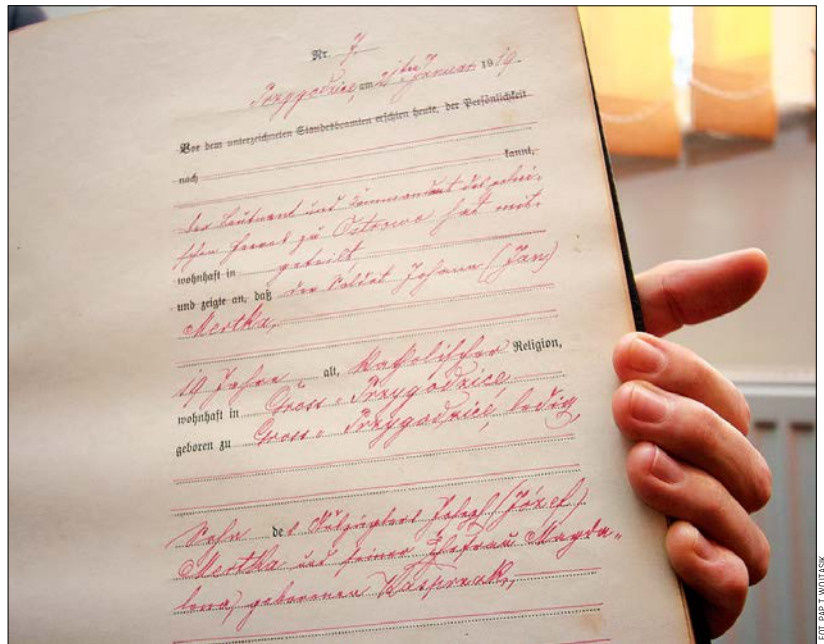 Nr. 7.
Przygodzice, am 21ten Januar 1919.
Vor dem unterzeichneten Standesbeamten erschien heute, der Persönlichkeit
nach
kannt,
Der Leutnant und Kommandant des polni-
schen Heeres zu Ostrowo hat mit-
wohnhaft in geteilt
und zeigte an, daß der Soldat Johann (Jan)
Mertka,
19 Jahre alt, katholischer Religion,
wohnhaft in Gross-Przygodzice
geboren zu Gross-Przygodzice, ledig,
Sohn des Joseph (Józef)
Mertka und seiner Ehefrau Magda-
lena, geborenen Kasprzak,
FOT. PAP T. WOJTASIK